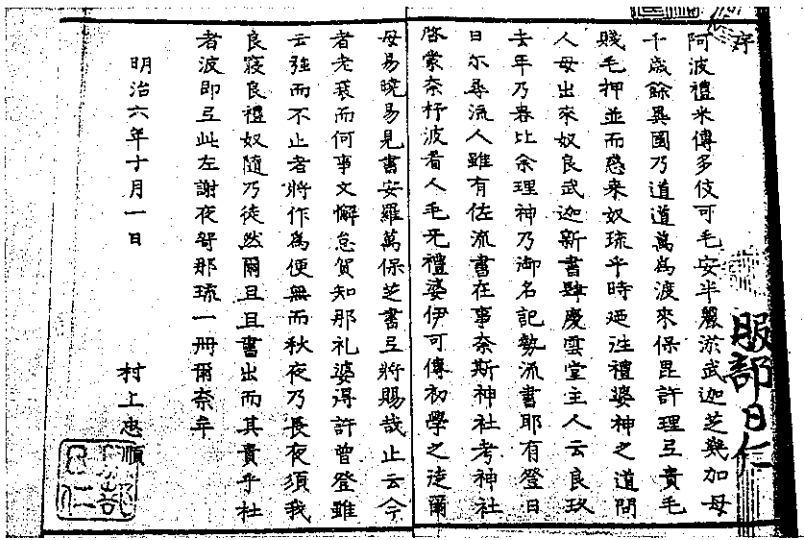 序
阿波禮米傳多伎可毛安半嚴淤武迦芝幾加母
千歳餘異國乃道道萬爲渡來保毘許理弖貴毛
賤毛押並而惑来奴琉乎時廻往禮婆神之道問
人母出來奴良武迦新書肆慶雲堂主人云良玖
去年乃春比余理神乃御名記勢流書耶有登日
日尓尋流人雖有佐流書在事奈斯神社考神社
啓蒙奈杼波看人毛无禮婆伊可傳初學之徒爾
母易曉易見書安羅萬保芝書弖將賜哉止云今
者老衰而何事文懈怠賀知那礼婆得許曾登雖
云強而不止者將作爲便無而秋夜乃長夜須我
良寢良禮奴隨乃徒然爾且且書出而其責乎杜
者波即弖此左謝夜努那琉一冊爾奈牟
明治六年十月一日
村上忠順
服部日仁